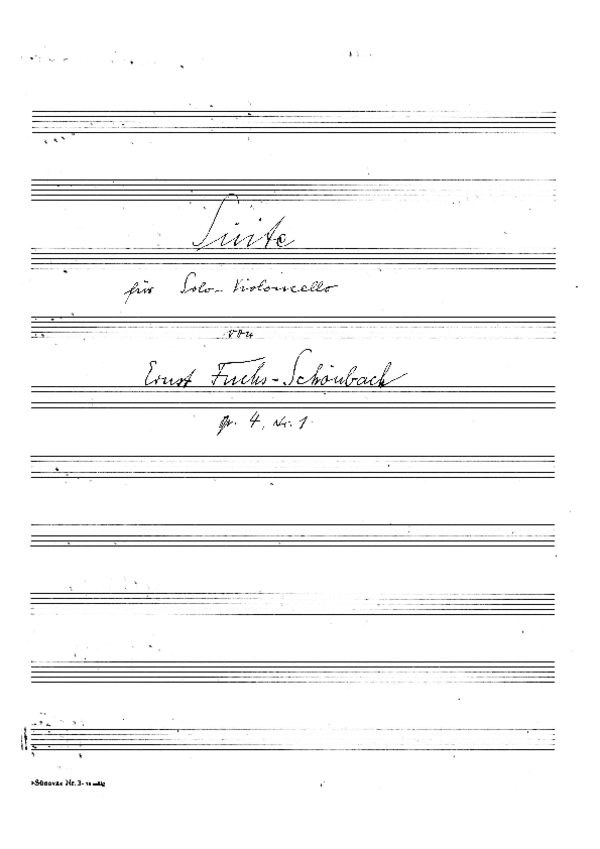 Suite
für Solo-Violoncello
von
Ernst Fuchs-Schönbach
op. 4, Nr. 1.
Nr. 3-